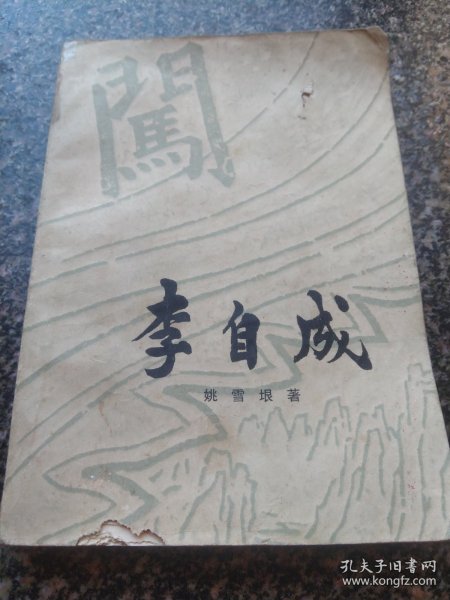 闖
李自成
姚雪垠著
孔夫子旧书网
www.kongfz.com